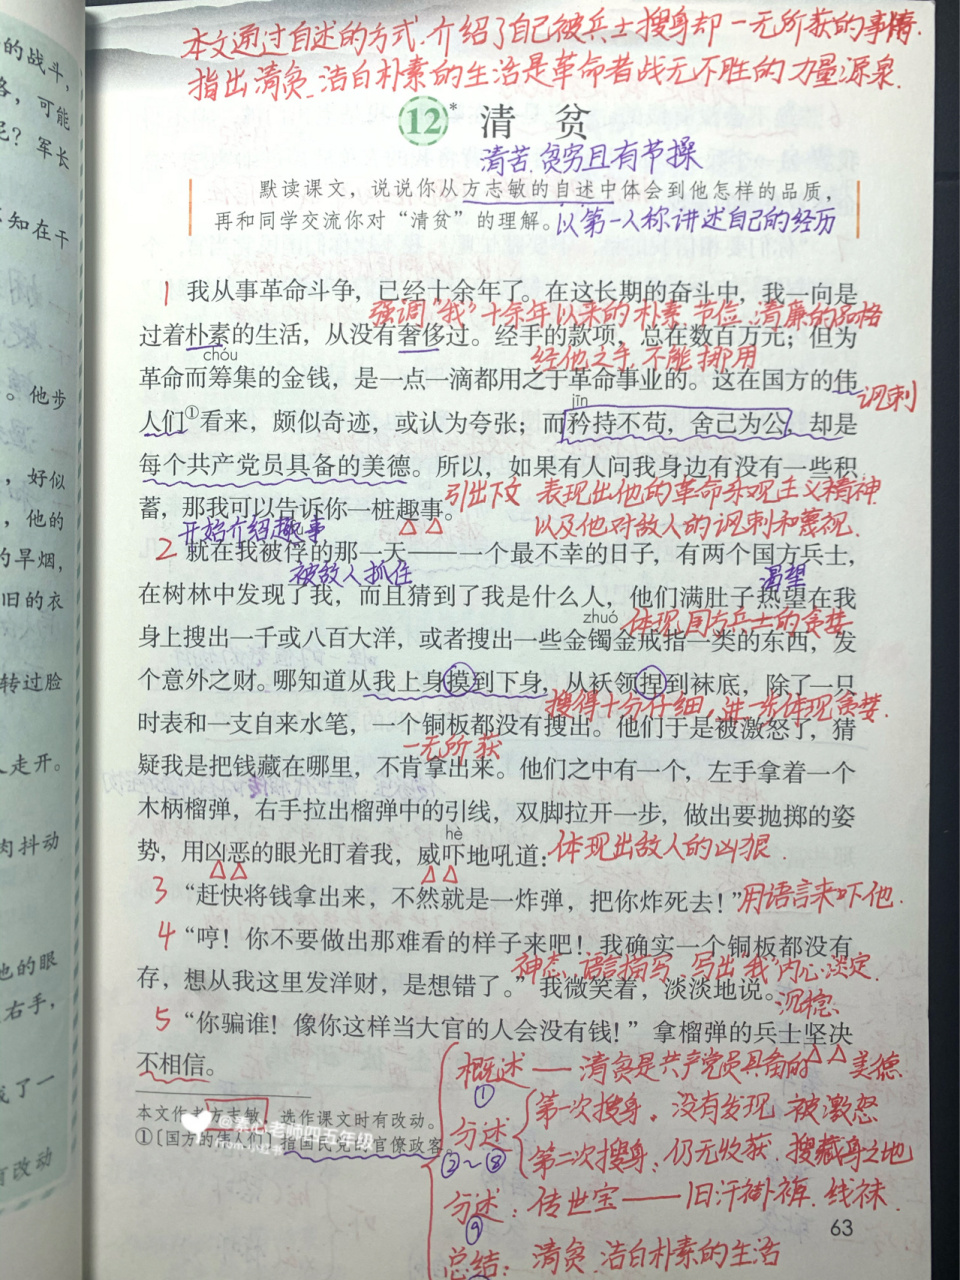 本文通过自述的方式.介绍了自己被兵士搜身却一无所获的事情.
指出清贫、洁白朴素的生活是革命者战无不胜的力量源泉.
12* 清 贫
清苦.贫穷且有节操
默读课文，说说你从方志敏的自述中体会到他怎样的品质，
再和同学交流你对“清贫”的理解。以第一人称讲述自己的经历
1 我从事革命斗争，已经十余年了。在这长期的奋斗中，我一向是
强调“我”十余年以来的朴素 节俭.清廉的品格
过着朴素的生活，从没有奢侈过。经手的款项，总在数百万元；但为
chóu
经他之手 不能挪用
革命而筹集的金钱，是一点一滴都用之于革命事业的。这在国方的伟
讽刺
jīn
人们①看来，颇似奇迹，或认为夸张；而矜持不苟，舍己为公，却是
每个共产党员具备的美德。所以，如果有人问我身边有没有一些积
引出下文 表现出他的革命乐观主义精神
蓄，那我可以告诉你一桩趣事。
以及他对敌人的讽刺和蔑视.
开始介绍趣事
2 就在我被俘的那一天——一个最不幸的日子，有两个国方兵士，
被敌人抓住
渴望
在树林中发现了我，而且猜到了我是什么人，他们满肚子热望在我
zhuó
体现国方兵士的贪婪
身上搜出一千或八百大洋，或者搜出一些金镯金戒指一类的东西，发
个意外之财。哪知道从我上身摸到下身，从袄领捏到袜底，除了一只
搜得十分仔细,进一步体现贪婪.
时表和一支自来水笔，一个铜板都没有搜出。他们于是被激怒了，猜
一无所获
疑我是把钱藏在哪里，不肯拿出来。他们之中有一个，左手拿着一个
木柄榴弹，右手拉出榴弹中的引线，双脚拉开一步，做出要抛掷的姿
hè
势，用凶恶的眼光盯着我，威吓地吼道：体现出敌人的凶狠.
3 “赶快将钱拿出来，不然就是一炸弹，把你炸死去！”用语言来吓他.
4 “哼！你不要做出那难看的样子来吧！我确实一个铜板都没有
神态、语言描写.写出“我”内心淡定.
存，想从我这里发洋财，是想错了。”我微笑着，淡淡地说。
沉稳.
5 “你骗谁！像你这样当大官的人会没有钱！”拿榴弹的兵士坚决
不相信。
概述——清贫是共产党员具备的美德
①
本文作者方志敏，选作课文时有改动。
第一次搜身。没有发现 被激怒
分述
①〔国方的伟人们〕指国民党的官僚政客。
②～⑧
第二次搜身：仍无收获 搜藏身之地
分述：传世宝——旧汗褂裤.线袜.
⑨
63
总结：清贫.洁白朴素的生活
的战斗，
可能
军长
知在干
他步
好似
他的
旱烟，
旧的衣
转过脸
走开。
肉抖动
他的眼
右手，
了一
改动